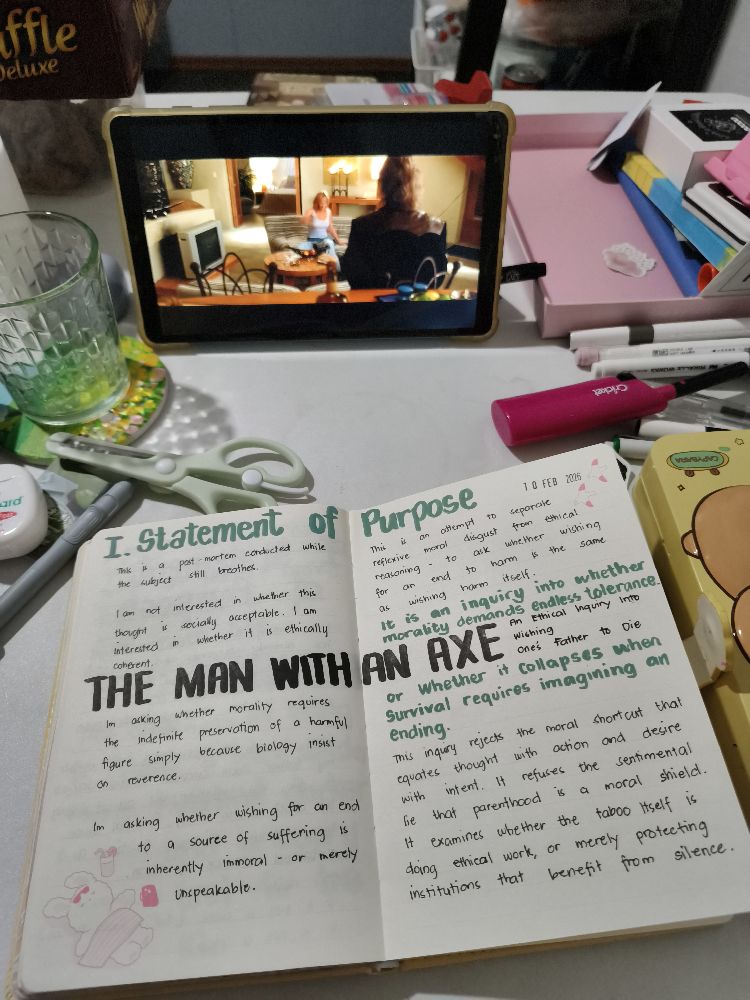 affle
Deluxe
Cricket
CAPYBARA
ard
10 FEB 2026
I. Statement of Purpose
This is a post-mortem conducted while
the subject still breathes.
I am not interested in whether this
thought is socially acceptable. I am
interested in whether it is ethically
coherent.
THE MAN WITH AN AXE
An Ethical Inquiry Into
Wishing
one's Father to Die
Im asking whether morality requires
the indefinite preservation of a harmful
figure simply because biology insist
on reverence.
Im asking whether wishing for an end
to a source of suffering is
inherently immoral - or merely
unspeakable.
This is an attempt to separate
reflexive moral disgust from ethical
reasoning - to ask whether wishing
for an end to harm is the same
as wishing harm itself.
It is an inquiry into whether
morality demands endless tolerance.
or whether it collapses when
survival requires imagining an
ending.
This inqury rejects the moral shortcut that
equates thought with action and desire
with intent. It refuses the sentimental
lie that parenthood is a moral shield.
It examines whether the taboo itself is
doing ethical work, or merely protecting
institutions that benefit from silence.